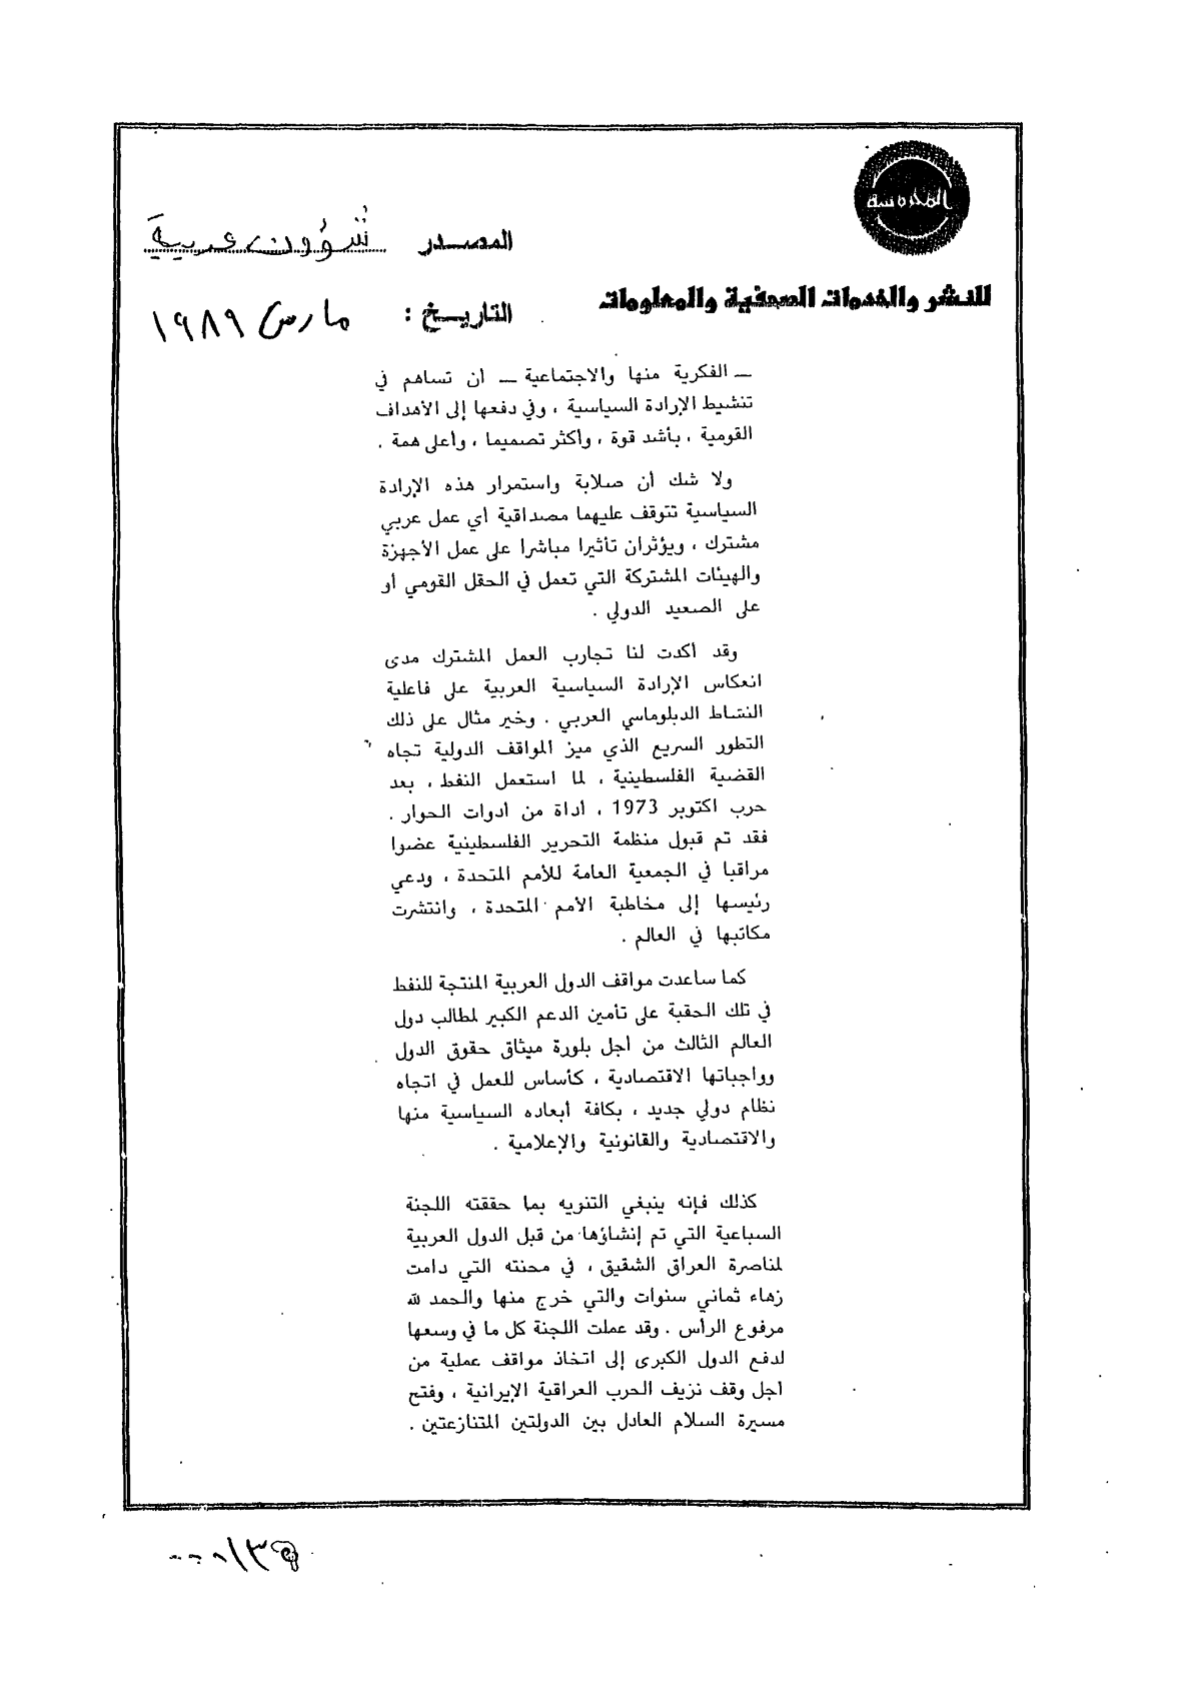 المحروسة
المصدر شؤون عربية
للنشر والخدمات الصحفية والمعلومات
التاريخ : مارس ١٩٨٩
ــ الفكرية منها والاجتماعية ــ أن تساهم في
تنشيط الإرادة السياسية ، وفي دفعها إلى الأهداف
القومية ، بأشد قوة ، وأكثر تصميما ، وأعلى همة .
ولا شك أن صلابة واستمرار هذه الإرادة
السياسية تتوقف عليهما مصداقية أي عمل عربي
مشترك ، ويؤثران تأثيرا مباشرا على عمل الأجهزة
والهيئات المشتركة التي تعمل في الحقل القومي أو
على الصعيد الدولي .
وقد أكدت لنا تجارب العمل المشترك مدى
انعكاس الإرادة السياسية العربية على فاعلية
النشاط الدبلوماسي العربي . وخير مثال على ذلك
التطور السريع الذي ميز المواقف الدولية تجاه
القضية الفلسطينية ، لما استعمل النفط ، بعد
حرب اكتوبر 1973 ، أداة من أدوات الحوار .
فقد تم قبول منظمة التحرير الفلسطينية عضوا
مراقبا في الجمعية العامة للأمم المتحدة ، ودعي
رئيسها إلى مخاطبة الأمم المتحدة ، وانتشرت
مكاتبها في العالم .
كما ساعدت مواقف الدول العربية المنتجة للنفط
في تلك الحقبة على تأمين الدعم الكبير لمطالب دول
العالم الثالث من أجل بلورة ميثاق حقوق الدول
وواجباتها الاقتصادية ، كأساس للعمل في اتجاه
نظام دولي جديد ، بكافة أبعاده السياسية منها
والاقتصادية والقانونية والإعلامية .
كذلك فإنه ينبغي التنويه بما حققته اللجنة
السباعية التي تم إنشاؤها من قبل الدول العربية
لمناصرة العراق الشقيق ، في محنته التي دامت
زهاء ثماني سنوات والتي خرج منها والحمد لله
مرفوع الرأس . وقد عملت اللجنة كل ما في وسعها
لدفع الدول الكبرى إلى اتخاذ مواقف عملية من
أجل وقف نزيف الحرب العراقية الإيرانية ، وفتح
مسيرة السلام العادل بين الدولتين المتنازعتين .